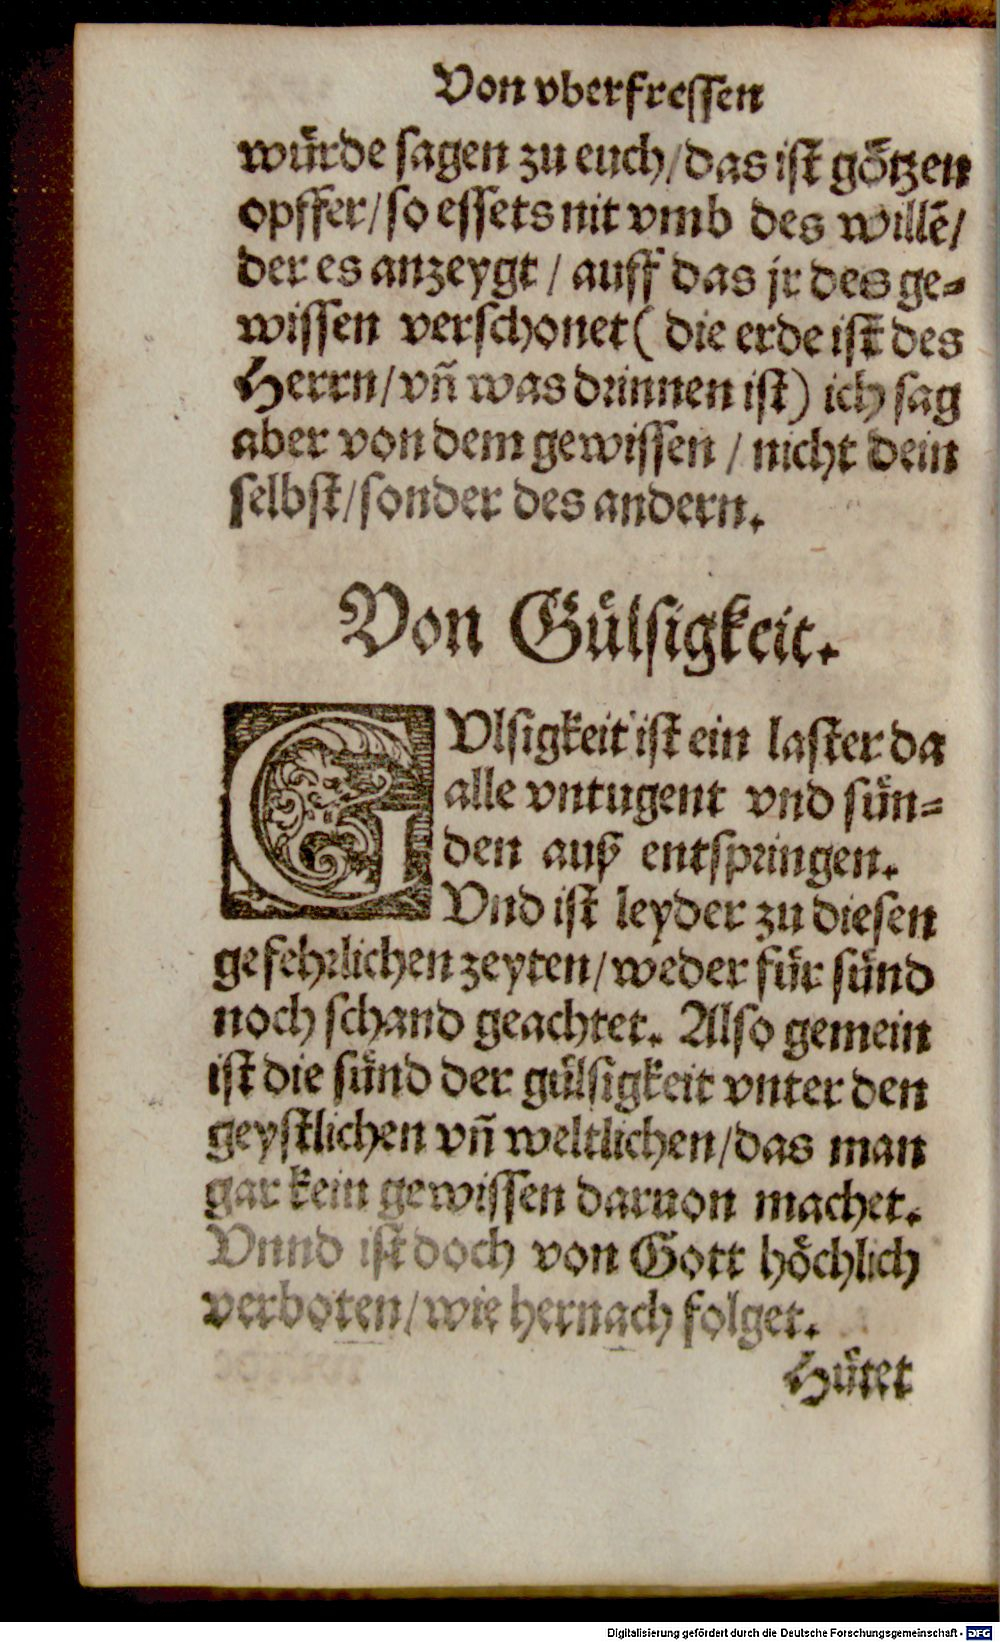 Von vberfressen
wuͤrde sagen zu euch/das ist goͤtzen
opffer/so essets nit vmb des willē/
der es anzeygt / auff das jr des ge-
wissen verschonet( die erde ist des
Herrn/vñ was drinnen ist) ich sag
aber von dem gewissen / nicht dein
selbst/sonder des andern.
Von Guͤlsigkeit.
GVlsigkeit ist ein laster da
alle vntugent vnd suͤn-
den auß entspringen.
Vnd ist leyder zu diesen
gefehrlichen zeyten/weder fuͤr suͤnd
noch schand geachtet. Also gemein
ist die suͤnd der guͤlsigkeit vnter den
geystlichen vñ weltlichen/das man
gar kein gewissen daruon machet.
Vnnd ist doch von Gott hoͤchlich
verboten/wie hernach folget.
Huͤtet
Digitalisierung gefördert durch die Deutsche Forschungsgemeinschaft - DFG